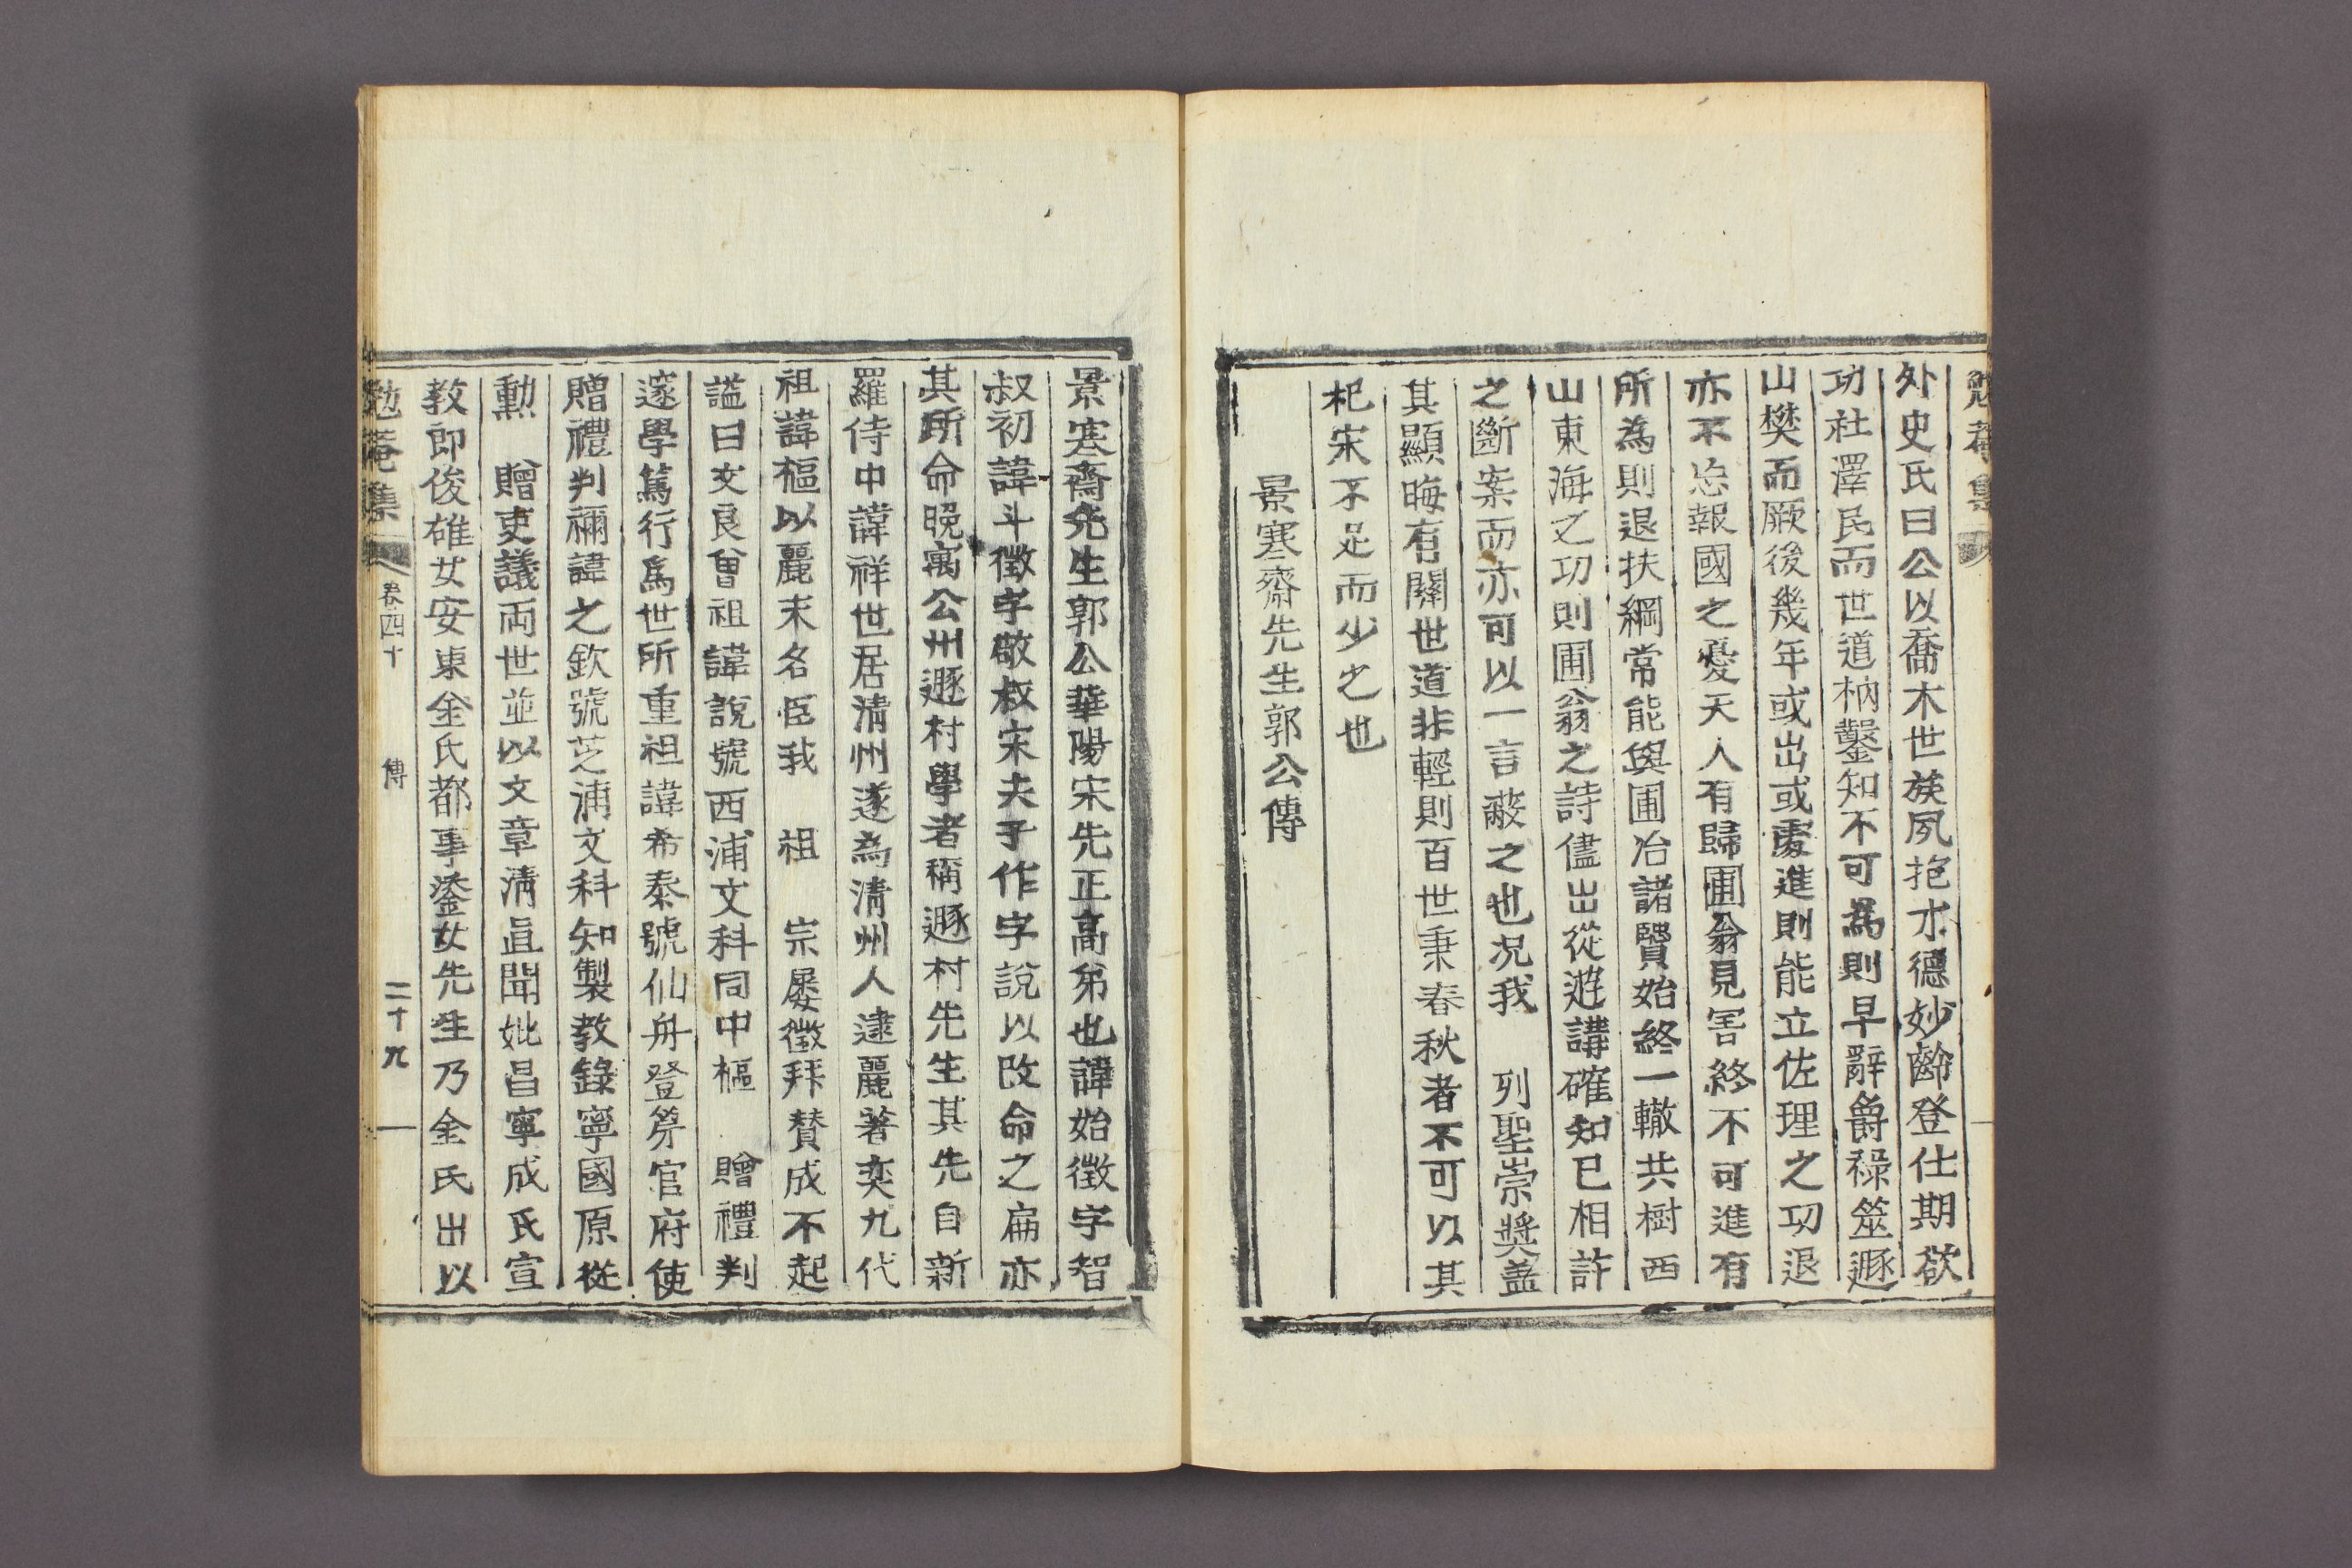 勉菴集
外史氏曰公以喬木世族夙抱才德妙齡登仕期欲
功社澤民而世道枘鑿知不可為則早辭爵祿筮遯
山樊而厥後幾年或出或處進則能立佐理之功退
亦不忘報國之憂天人有歸圃翁見害終不可進有
所為則退扶綱常能與圃冶諸賢始終一轍共樹西
山東海之功則圃翁之詩儘出從遊講確知已相許
之斷案而亦可以一言蔽之也况我　列聖崇奬盖
其顯晦有關世道非輕則百世秉春秋者不可以其
杞宋不足而少之也
景寒齋先生郭公傳
景寒齋先生郭公華陽宋先正高弟也諱始徵字智
叔初諱斗徵字敬叔宋夫子作字說以改命之扁亦
其所命晚寓公州遯村學者稱遯村先生其先自新
羅侍中諱祥世居淸州遂為淸州人逮麗著奕九代
祖諱樞以麗末名臣我　祖　宗屡徵拜賛成不起
諡曰文良曾祖諱說號西浦文科同中樞　贈禮判
邃學篤行爲世所重祖諱希泰號仙舟登筭官府使
贈禮判禰諱之欽號芝浦文科知製教錄寧國原從
勳　贈吏議両世並以文章淸直聞妣昌寧成氏宣
教郎俊雄女安東金氏都事鋈女先生乃金氏出以
勉菴集
卷四十
傳
二十九